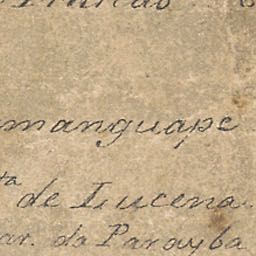 manguape
ta de Lucena.
ar. da Parayba